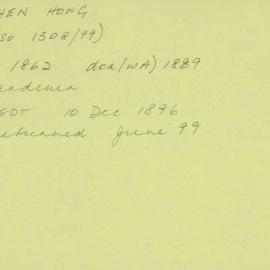 HEN HONG
so 1308/99)
1862 doa (WA) 1889
ardener
EDT. 10 Dec 1896
eturned June 99